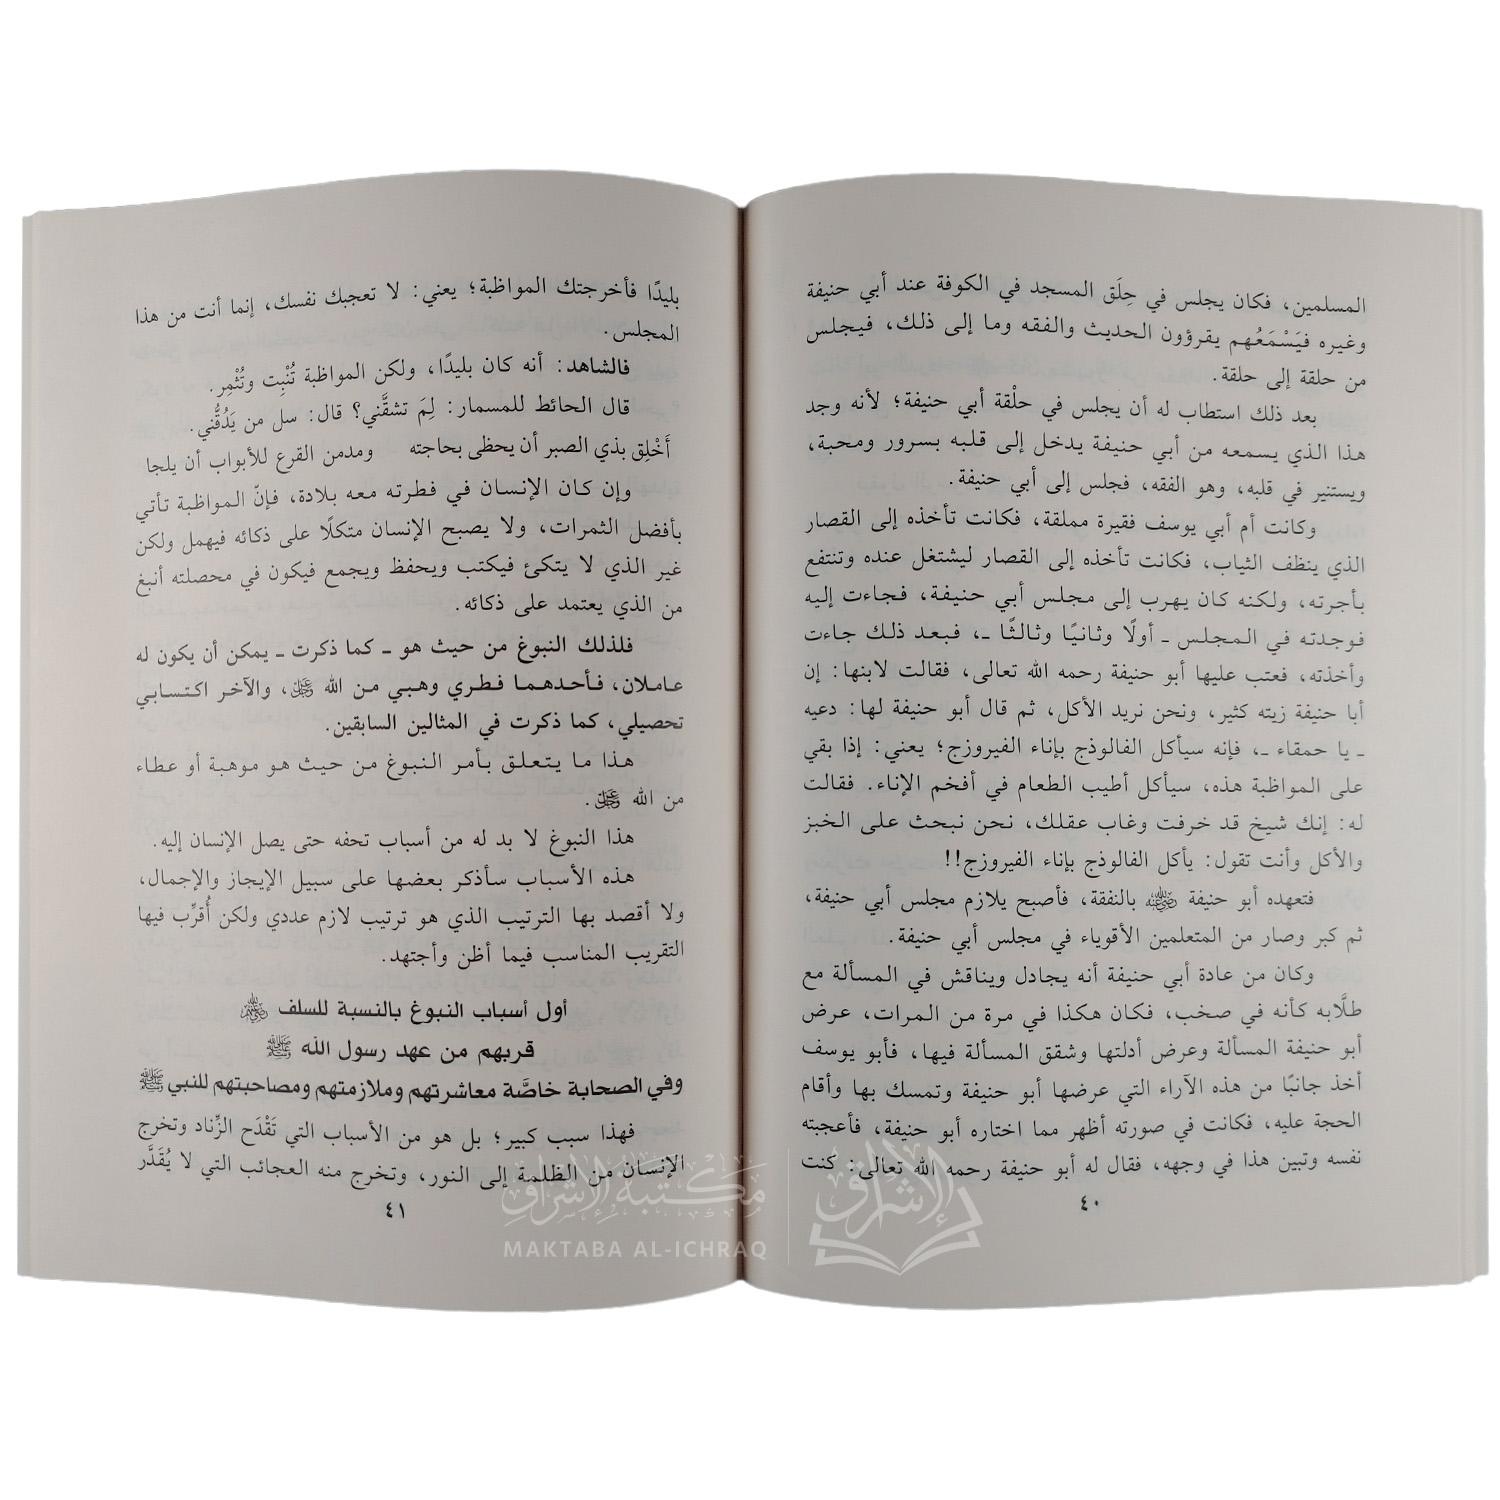 المسلمين، فكان يجلس في حِلَق المسجد في الكوفة عند أبي حنيفة
وغيره فيَسْمَعُهم يقرؤون الحديث والفقه وما إلى ذلك، فيجلس
من حلقة إلى حلقة.
بعد ذلك استطاب له أن يجلس في حلْقة أبي حنيفة؛ لأنه وجد
هذا الذي يسمعه من أبي حنيفة يدخل إلى قلبه بسرور ومحبة،
ويستنير في قلبه، وهو الفقه، فجلس إلى أبي حنيفة.
وكانت أم أبي يوسف فقيرة مملقة، فكانت تأخذه إلى القصار
الذي ينظف الثياب، فكانت تأخذه إلى القصار ليشتغل عنده وتنتفع
بأجرته، ولكنه كان يهرب إلى مجلس أبي حنيفة، فجاءت إليه
فوجدته في المجلس ـ أولًا وثانيًا وثالثًا ـ، فبعد ذلك جاءت
وأخذته، فعتب عليها أبو حنيفة رحمه الله تعالى، فقالت لابنها: إن
أبا حنيفة زيته كثير، ونحن نريد الأكل، ثم قال أبو حنيفة لها: دعيه
ـ يا حمقاء ـ، فإنه سيأكل الفالوذج بإناء الفيروزج؛ يعني: إذا بقي
على المواظبة هذه، سيأكل أطيب الطعام في أفخم الإناء. فقالت
له: إنك شيخ قد خرفت وغاب عقلك، نحن نبحث على الخبز
والأكل وأنت تقول: يأكل الفالوذج بإناء الفيروزج!!
فتعهده أبو حنيفة رضي الله عنه بالنفقة، فأصبح يلازم مجلس أبي حنيفة،
ثم كبر وصار من المتعلمين الأقوياء في مجلس أبي حنيفة.
وكان من عادة أبي حنيفة أنه يجادل ويناقش في المسألة مع
طلَّابه كأنه في صخب، فكان هكذا في مرة من المرات، عرض
أبو حنيفة المسألة وعرض أدلتها وشقق المسألة فيها، فأبو يوسف
أخذ جانبًا من هذه الآراء التي عرضها أبو حنيفة وتمسك بها وأقام
الحجة عليه، فكانت في صورته أظهر مما اختاره أبو حنيفة، فأعجبته
نفسه وتبين هذا في وجهه، فقال له أبو حنيفة رحمه الله تعالى: كنت
٤٠
بليدًا فأخرجتك المواظبة؛ يعني: لا تعجبك نفسك، إنما أنت من هذا
المجلس.
فالشاهد: أنه كان بليدًا، ولكن المواظبة تُنْبِت وتُثْمِر.
قال الحائط للمسمار: لِمَ تشقَّني؟ قال: سل من يَدُقُّني.
أَخْلِق بذي الصبر أن يحظى بحاجته ومدمن القرع للأبواب أن يلجا
وإن كان الإنسان في فطرته معه بلادة، فإنّ المواظبة تأتي
بأفضل الثمرات، ولا يصبح الإنسان متكلًا على ذكائه فيهمل ولكن
غير الذي لا يتكئ فيكتب ويحفظ ويجمع فيكون في محصلته أنبغ
من الذي يعتمد على ذكائه.
فلذلك النبوغ من حيث هو ـ كما ذكرت ـ يمكن أن يكون له
عاملان، فأحدهما فطري وهبي من الله عز وجل، والآخر اكتسابي
تحصيلي، كما ذكرت في المثالين السابقين.
هذا ما يتعلق بأمر النبوغ من حيث هو موهبة أو عطاء
من الله عز وجل.
هذا النبوغ لا بد له من أسباب تحفه حتى يصل الإنسان إليه.
هذه الأسباب سأذكر بعضها على سبيل الإيجاز والإجمال،
ولا أقصد بها الترتيب الذي هو ترتيب لازم عددي ولكن أُقرِّب فيها
التقريب المناسب فيما أظن وأجتهد.
أول أسباب النبوغ بالنسبة للسلف رضي الله عنهم
قربهم من عهد رسول الله ﷺ
وفي الصحابة خاصَّة معاشرتهم وملازمتهم ومصاحبتهم للنبي ﷺ
فهذا سبب كبير؛ بل هو من الأسباب التي تَقْدَح الزِّناد وتخرج
الإنسان من الظلمة إلى النور، وتخرج منه العجائب التي لا يُقَدَّر
٤١
مكتبة الإشراق
MAKTABA AL-ICHRAQ
الإشراق